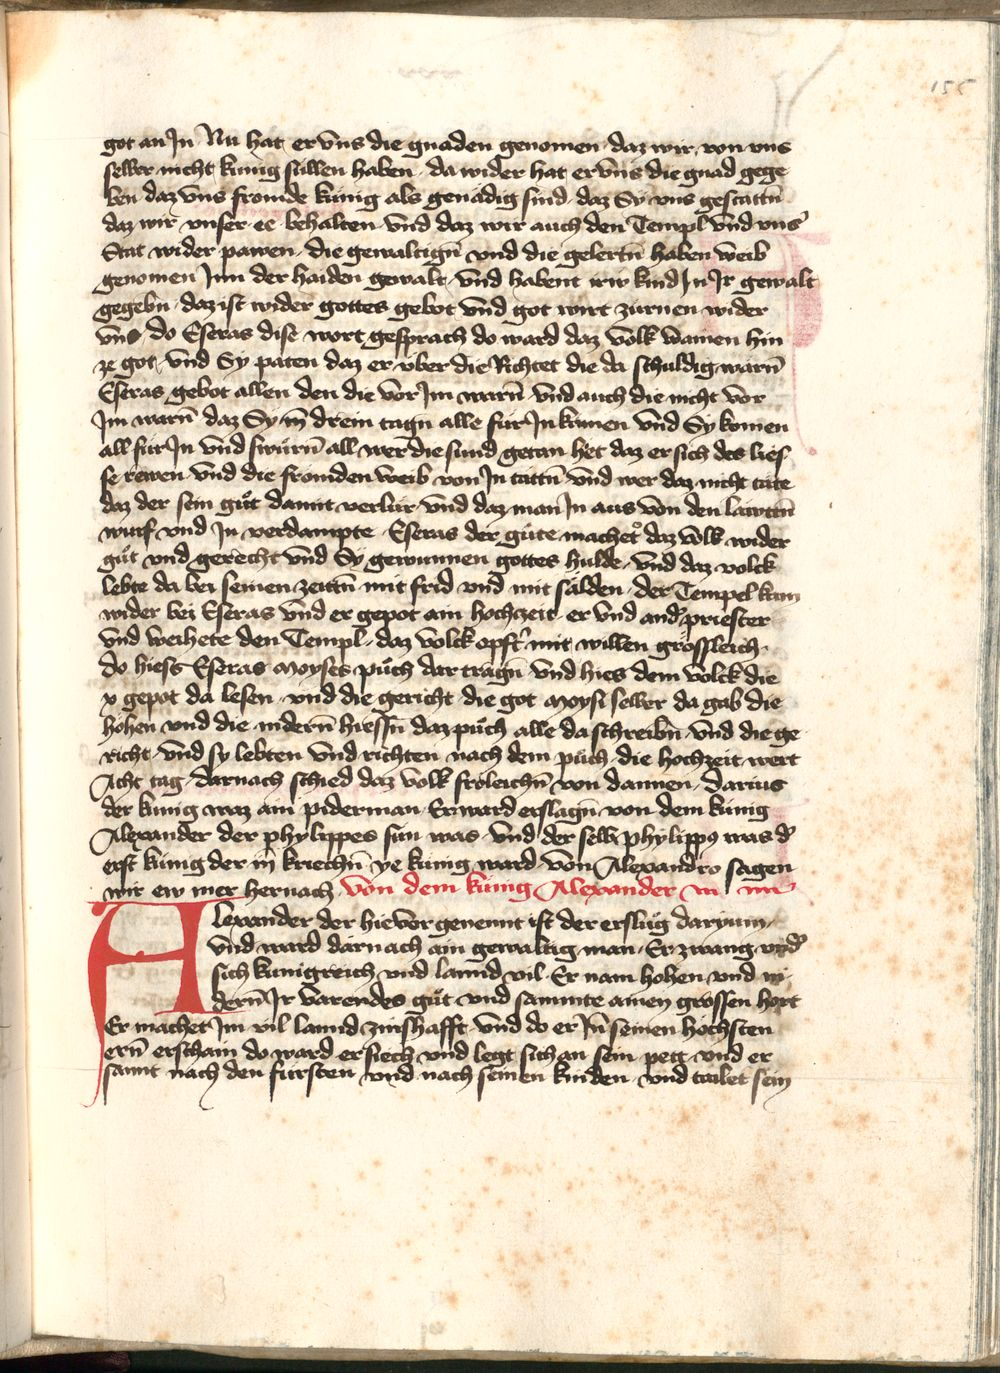 155
got an Jn Nu hat er vns die gnaden genomen daz wir von vns
selber nicht kunig sullen haben da wider hat er vns die gnad gege
ben daz vns fromde kunig als genadig sind daz Sy vns gestattn̄
daz wir vnser ee behalten vnd daz wir auch den Templ vnd vns̄
Stat wider pawen die gewaltign̄ vnd die gelertn̄ haben weib
genomen Jnn der haiden gewalt vnd habent irw kind Jn Jr gewalt
gegebn daz ist wider gottes gebot vnd got wirt zurnen wider
vns do Eseras dise wort gesprach do ward daz volk wainen hin
ze got vnd Sy paten daz er vber die Richtet die da schuldig warn̄
Eseras gebot allen den die vor Jm warn̄ vnd auch die nicht vor
Jm warn̄ daz Sy in drein tagn alle fur Jn kumen vnd Sy komen
all fur Jn vnd swurn̄ all wer die sund getan het daz er sich des lies
se rewen vnd die fromden weib von Jn tattn̄ vnd wer daz nicht tate
daz der sein gůt damit verlur vnd daz man Jn aus von den lawttn̄
wurf vnd Jn verdampte Eseras der gute machet daz volk wider
gůt vnd gerecht vnd Sy gewunnen gottes hulde vnd daz volck
lebte da bei seinen zeittn̄ mit frid vnd mit sälden der Tempel kam
wider bei Eseras vnd er gepot ain hochzeit er vnd and̄ priester
vnd weihete den Templ daz volck opft̄ mit willen grössleich
do hiess Eseras Moyses půch dar tragn̄ vnd hies dem volck die
x gepot da lesen vnd die gericht die got Moysi selber da gab die
hohen vnd die nidern̄ hiessn̄ daz půch alle da schreibn̄ vnd die ge
richt vnd sy lebten vnd richten nach dem půch die hochzeit wert
Acht tag darnach schied daz volk froleichn̄ von dannen darius
der kunig waz ain piderman Er ward erslagn̄ von dem kunig
Alexander der phylippes sun was vnd der selb phylippus was d̄
erst kunig der in kriechn̄ ye kunig ward von Alexandro sagen
wir ew mer hernach Von dem kunig Alexander
Alexander der hie vor genennt ist der erslůg daryum
vnd ward darnach ain gewaltig man Er zwang vnd̄
sich kunigreich vnd lannd vil Er nam hohen vnd ni
dern̄ Jr varendes gůt vnd sammte ainen grossen hort
Er machet Jm vil lannd zinshafft vnd do er Jn̄ seinen hochsten
ern̄ erschain do ward er siech vnd legt sich an sein pett vnd er
sannt nach den fursten vnd nach seinen kinden vnd tailet sein